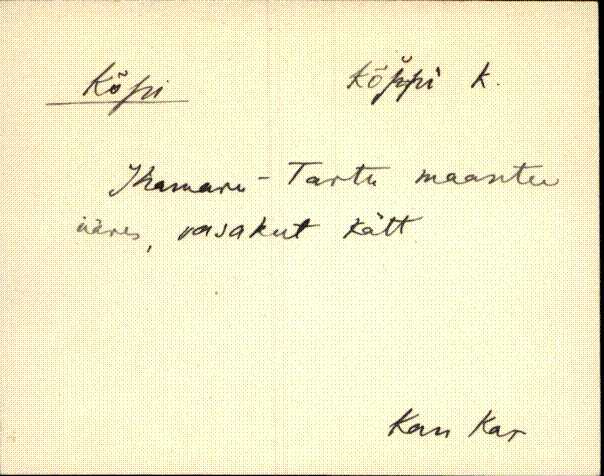 Kõpi Kõppi k.
Ihamaru - Tartu maantee
ääres, vasakut kätt
Kan Kar